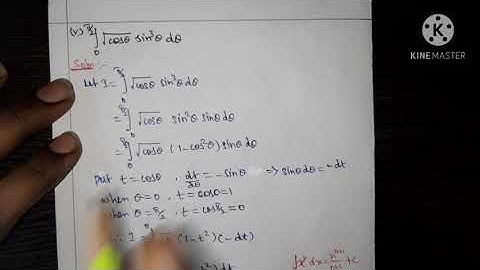 (v) ∫₀^(π/2) √cosθ sin³θ dθ
Soln :-
Let I = ∫₀^(π/2) √cosθ sin³θ dθ
= ∫₀^(π/2) √cosθ sin²θ sinθ dθ
= ∫₀^(π/2) √cosθ (1-cos²θ) sinθ dθ
Put t = cosθ , dt/dθ = -sinθ ⇒ sinθ dθ = -dt
when θ=0 , t = cos0 = 1
when θ=π/2 , t = cosπ/2 = 0
I = (1-t²)(-dt)
dt
∫xⁿdx = xⁿ⁺¹ + c
KINEMASTER